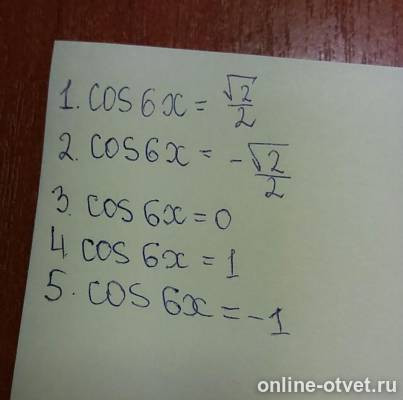 1. cos 6x = √2/2
2. cos 6x = -√2/2
3. cos 6x = 0
4 cos 6x = 1
5. cos 6x = -1
online-otvet.ru